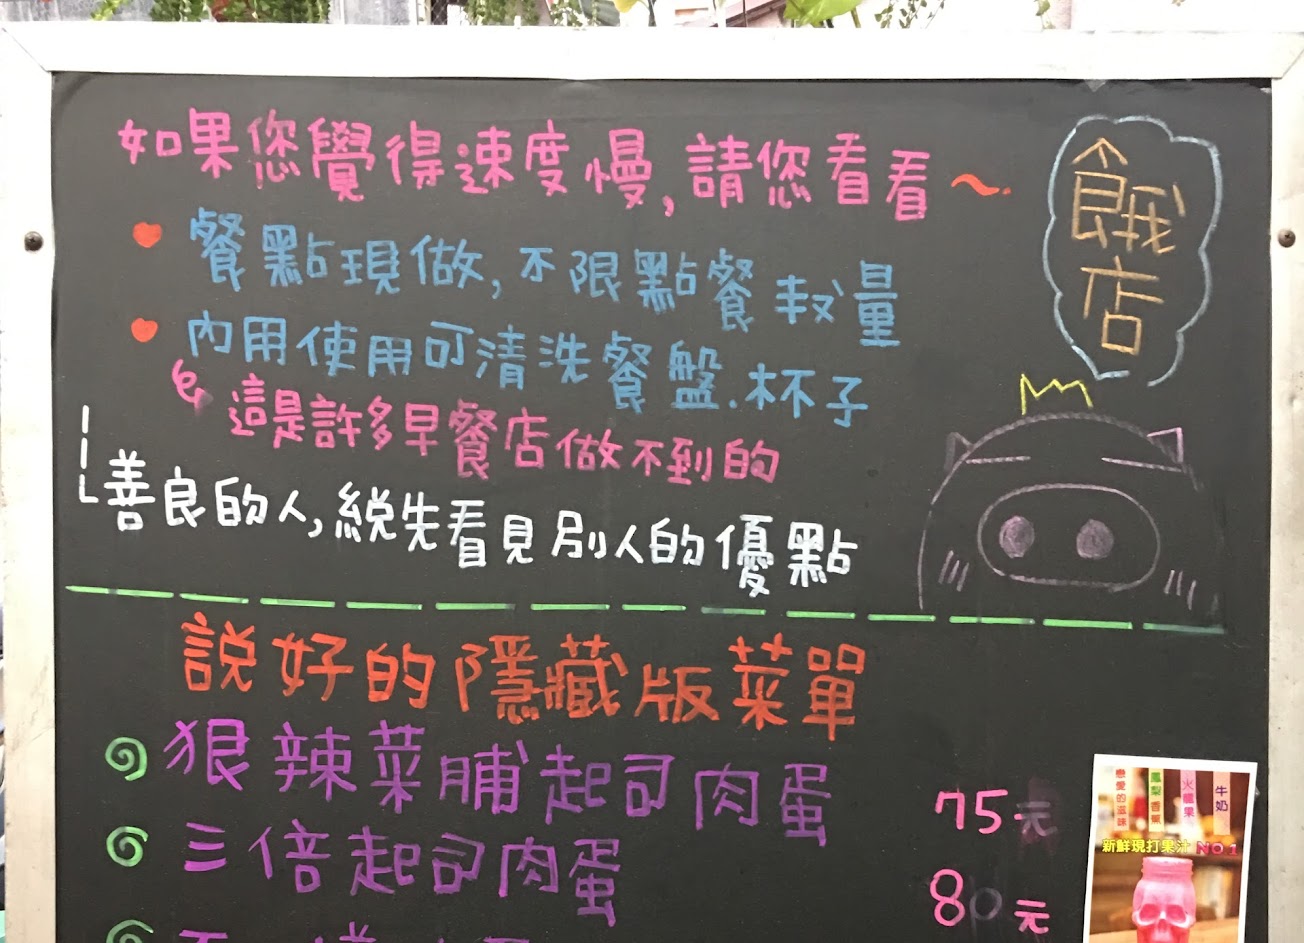 如果您覺得速度慢,請您看看~
餓店
餐點現做,不限點餐數量
內用使用可清洗餐盤.杯子
這是許多早餐店做不到的
善良的人,總先看見別人的優點
說好的隱藏版菜單
狠辣菜脯起司肉蛋 75元
三倍起司肉蛋 80元
戀愛的滋味
鳳梨香蕉
火龍果
牛奶
新鮮現打果汁 NO.1